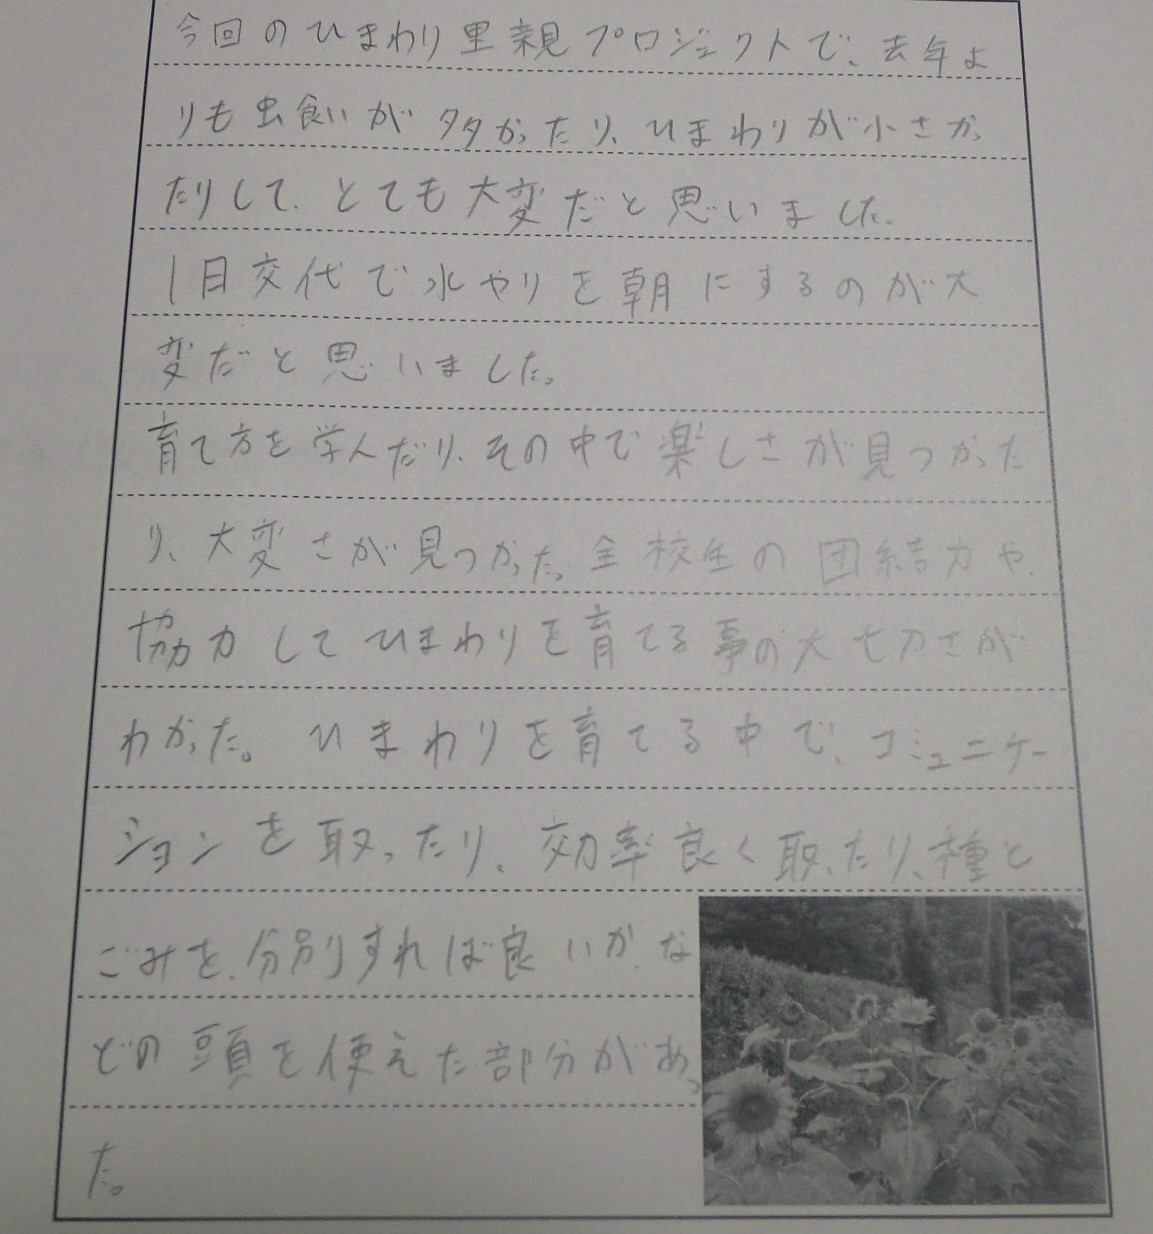 今回のひまわり里親プロジェクトで、去年よ
りも虫食いが多かったり、ひまわりが小さか
たりして、とても大変だと思いました。
1日交代で水やりを朝にするのが大
変だと思いました。
育て方を学んだり、その中で楽しさが見つかった
り、大変さが見つかった。全校生の団結力や、
協力してひまわりを育てる事の大切さが
わかった。ひまわりを育てる中で、コミュニケー
ションを取ったり、効率良く取ったり、種と
ごみを、分別すれば良いか、な
どの頭を使えた部分があっ
た。